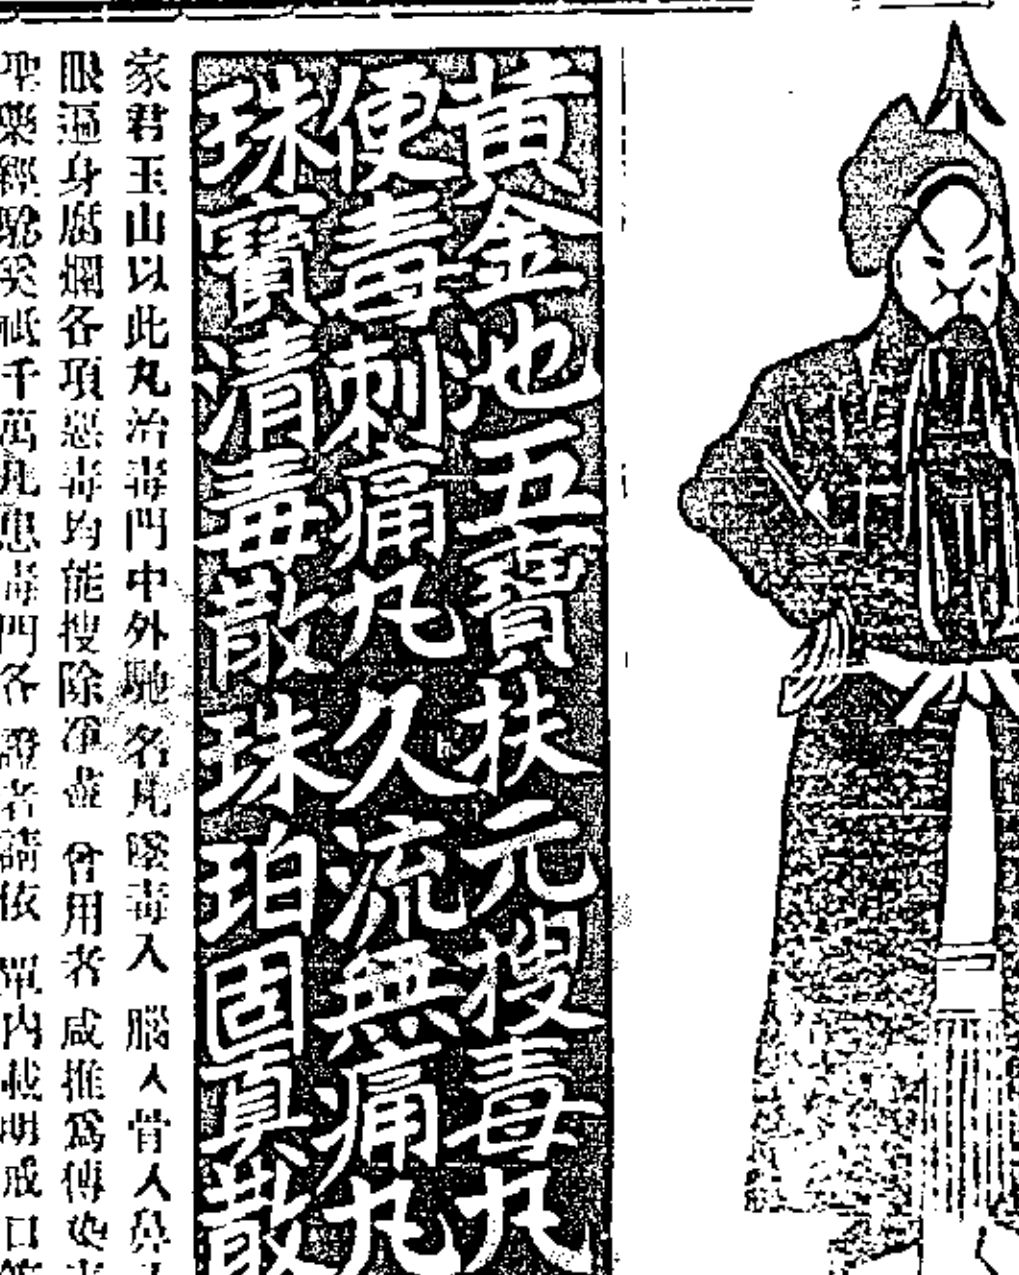 黃金池五寶扶元搜毒丸
便毒刺痛丸久流無痛丸
珠寶清毒散珠珀固真散
家君玉山以此丸治毒門中外馳名凡墜毒入腦入骨入鼻
眼逼身腐爛各項惡毒均能搜除淨盡會用者咸推為傳染
聖藥經驗矣祇千萬凡患毒門各證者請依單內載明戒口